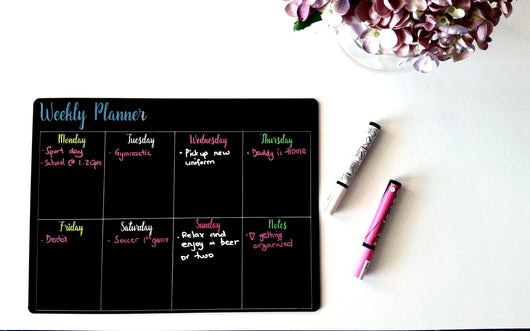 Weekly Planner
Monday
· Sport day
· School @ 1.20pm
Tuesday
· Gymnastic
Wednesday
· Pick up new
uniform
Thursday
· Daddy is HOME
Friday
· Dentist
Saturday
· Soccer 1st game
Sunday
· Relax and
enjoy a beer
or two
Notes
· ♡ getting
organised